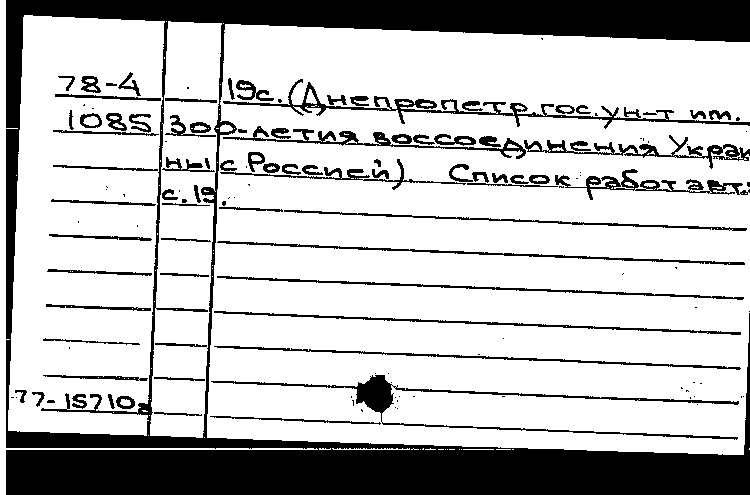 78-4 19с. (Днепропетр. гос. ун-т им.
1085 300-летия воссоединения Украи
ны с Россией). Список работ авт.:
с. 19.
77-15710а